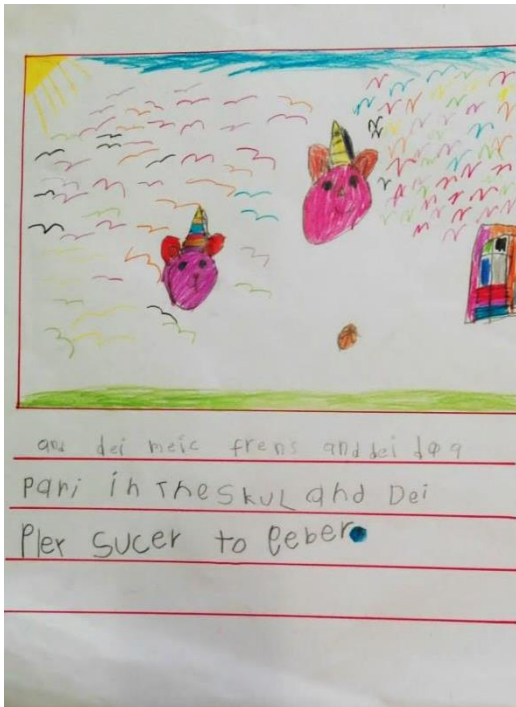 and dei meic frens and dei døq
pari in The SkuL and Dei
Pler sucer to eeber